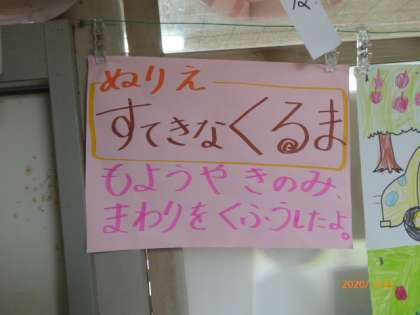 ぬりえ
すてきなくるま
もようやきのみ、
まわりをくふうしたよ。